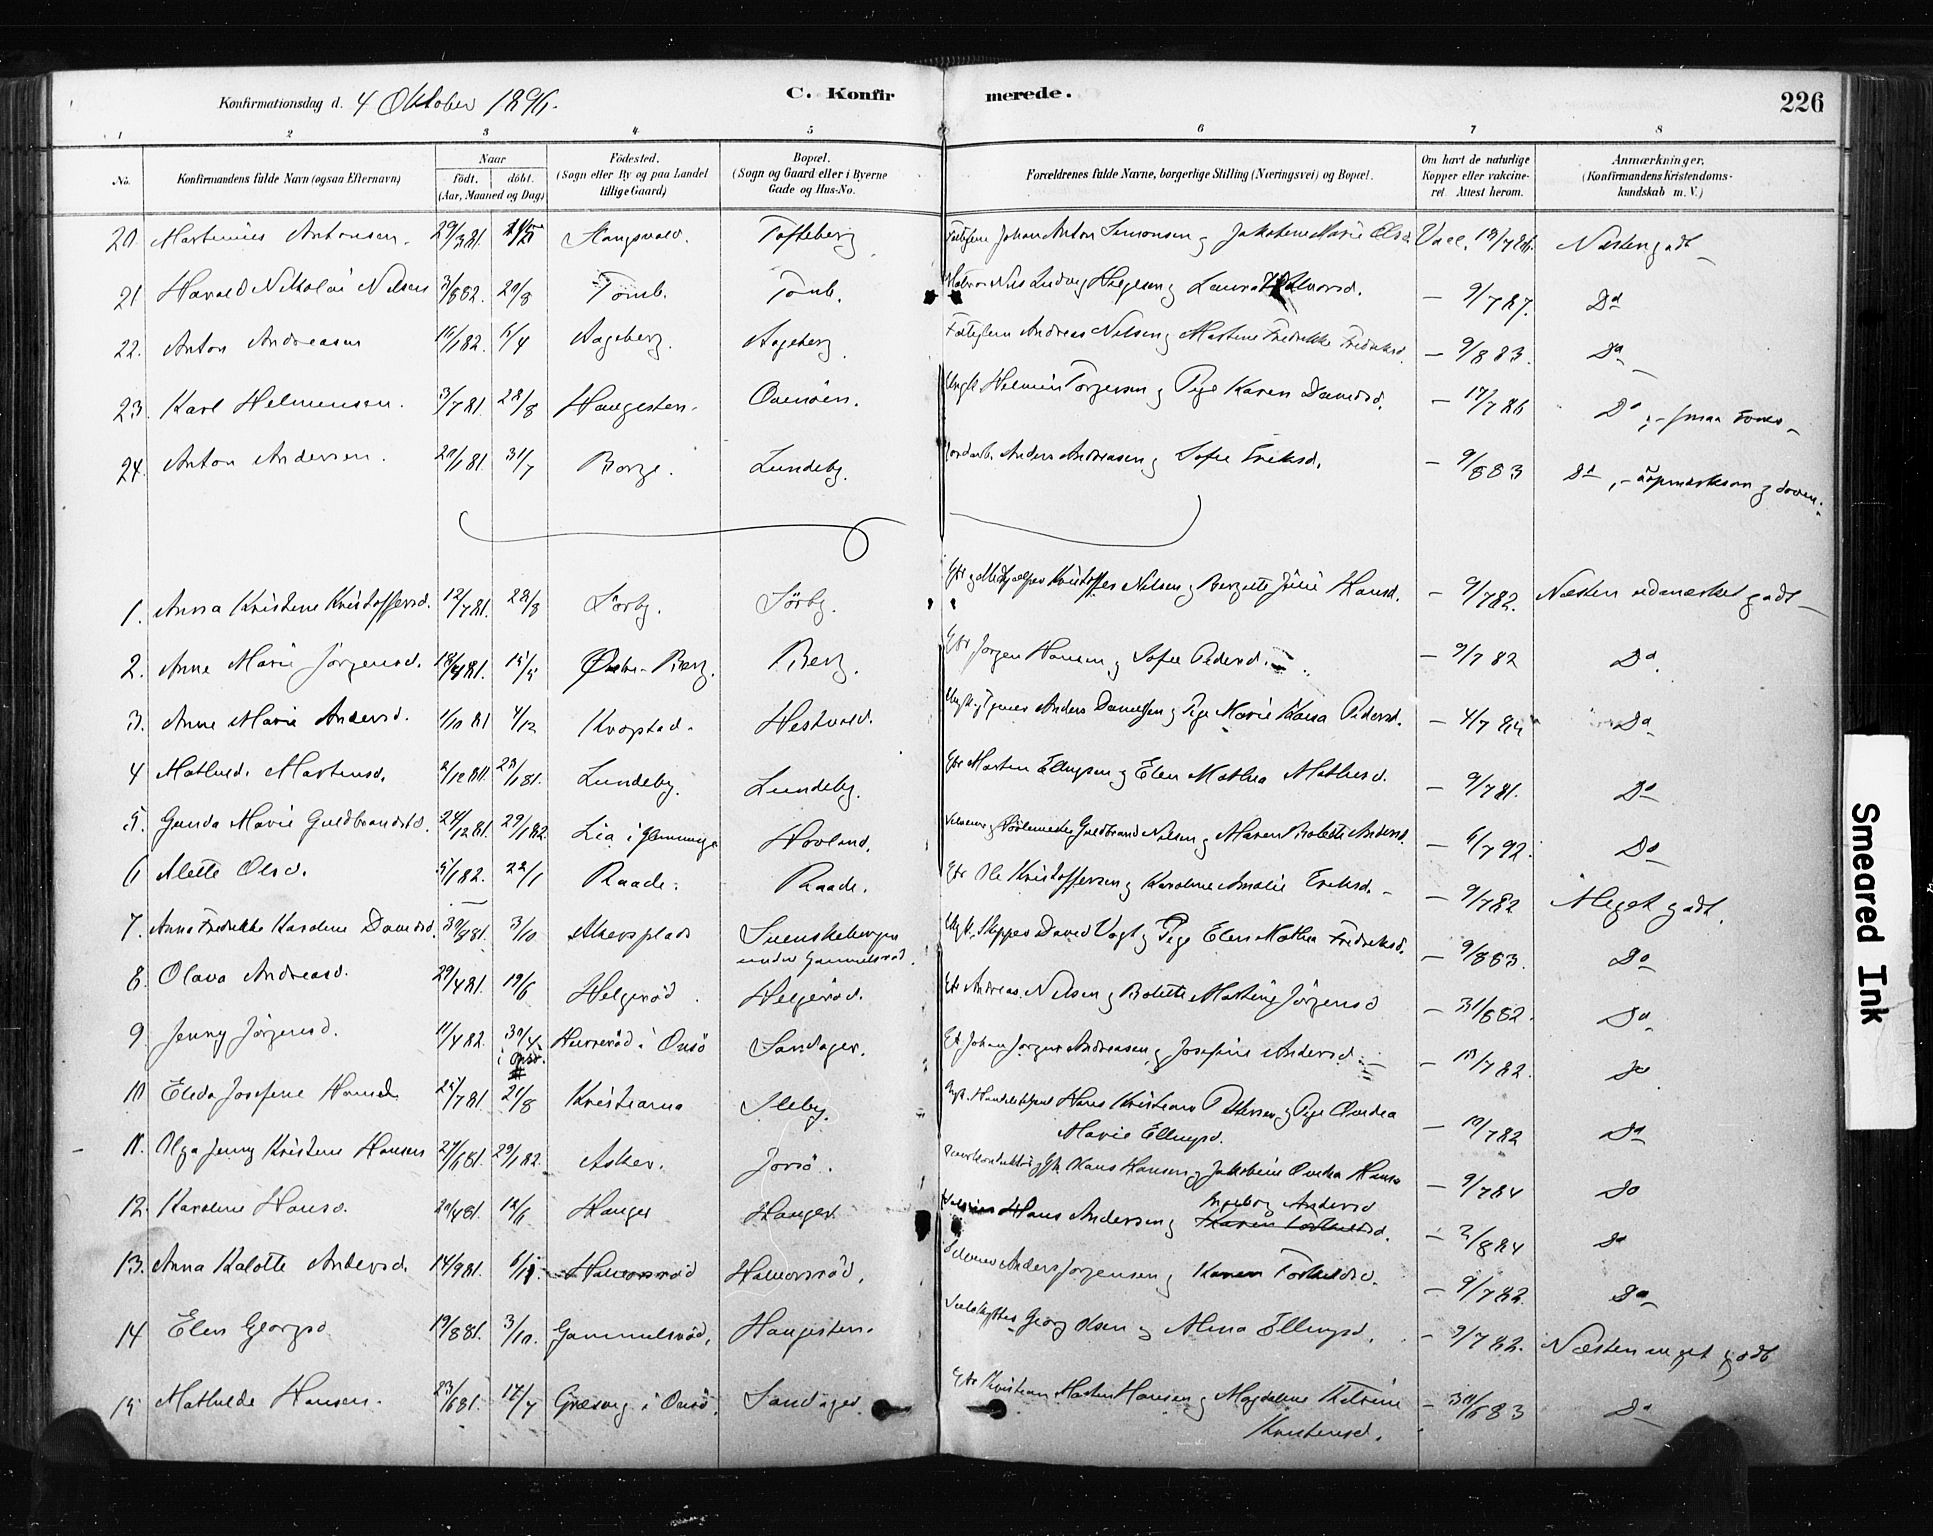 Konfirmationsdag d. 4 Oktober 1896. C. Konfirmerede. 226
1 2 3 4 5 6 7 8
No. Konfirmandens fulde Navn (ogsaa Efternavn) Naar født. døbt. (Aar, Maaned og Dag) Fødested. (Sogn eller By og paa Landet tillige Gaard) Bopæl. (Sogn og Gaard eller i Byerne Gade og Hus-No. Forældrenes fulde Navne, borgerlige Stilling (Næringsvei) og Bopæl. Om havt de naturlige Kopper eller vakcineret Attest herom. Anmærkninger, (Konfirmandens Kristendomskundskab m. V.)
20 Martinius Antonsen. 29/3 81. Tofteberg Johan Anton Simonsen og Jakobine Marie Olsd. Vacc. Næsten godt
21 Harald Nikolai Nilsen 3/8 82. 20/8 Tomb. Tomb. Nils Ludvig Helgesen og Laura Halvorsd. — 9/7 87. Do
22. Anton Andreasen 16/1 82. 6/4 Aageberg. Aageberg. Andreas Nilsen og Martine Fredrikke Fredriksd. — 9/8 83. Do
23. Karl Helmensen. 3/7 81. 28/8 Haugesten. Ovenöen. Ungk. Helmin Torgersen og Pige Karen Danielsd. — 17/7 86 Do, - smaa Evner
24. Anton Andersen. 20/1 81. 31/7 Borge. Lundeby. Anders Andreasen og Sofie Eriksd. — 9/8 83 Do, - uopmærksom og doven.
1. Anna Kristine Kristoffersd. 12/7 81. 28/8 Sörby. Sörby. Kristoffer Nilsen og Bergitte Julie Hansd. — 9/7 82. Næsten udmærket godt
2. Anne Marie Jörgensd. 18/4 81. 15/5 Østre-Berg. Berg. Gbr Jörgen Hansen og Sofie Pedersd. — 9/7 82 Do
3. Anne Marie Andersd. 1/10 81 4/12 Kropstad. Hestvold. Anders Danielsen og Pige Marie Klara Pedersd. — 4/7 84 Do
4 Mathild. Martensd. Lundeby. Lundeby. Gbr Morten Ellingsen og Elen Mathea Mathisd. — 9/7 81. Do
5. Gunda Marie Guldbrandsd. 24/12 81. 29/1 82 Lia i Glemminge Hovland. Guldbrand Nilsen og Maren Bolette Andersd. — 6/7 92. Do
6 Alette Olsd. 5/1 82. 22/1 Raade. Raade. Gbr Ole Kristoffersen og Karoline Amalie Eriksd. — 9/7 82 Meget godt.
7. Anna Fredrikke Karoline Davidsd. 30/8 81. 3/10 Akersplads Svenskebergen under Gammelsröd. Ungk. Skipper David Vogt og Pige Elen Mathea Fredriksd. — 9/8 83. Do
8. Olava Andreasd. 29/4 81. 19/6 Helgeröd. Helgeröd. Gbr Andreas Nilsen og Bolette Martine Jörgensd — 31/8 82. Do
9 Jenny Jörgensd. 11/4 82. 30/4 i Onsö. Huseröd i Onsö Sandager. Johan Jörgen Andreasen og Josefine Andersd. — 13/7 82. Do
10 Elida Josefine Hansd. 25/7 81. 21/8 Kristiania Sleby. Ungk. Hans Kristian Pettersen og Pige Ovidea
Marie Ellingsd. — 10/7 82 Do
11. Olga Jenny Kristine Hansen 27/6 81. 29/1 82. Asker. Jonsö. Hans Hansen og Jakobine Ovidia Hansd — 9/7 84 Do
12. Karoline Hansd. 20/4 81. 12/6 Hauger Hauger. Hans Andersen og Karen Torkelsd. Ingeborg Andersd — 2/8 84 Do
13. Anna Kalotte Andersd. 14/9 81. 6/11. Halvorsröd Halvorsröd. Anders Jörgensen og Karen Torkelsd. — 9/7 82. Do
14 Elen Georgsd 19/8 81. 3/10. Gammelsröd. Haugesten. Georg Olsen og Alma Ellingsd. — 9/7 82. Næsten meget godt
15 Mathilde Hansen. 23/6 81. 17/7 i Onsö. Sandager. Gbr Kristian Martin Hansen og Magdalene Katrine
Kristensd. — 30/6 83 Do
Smeared Ink